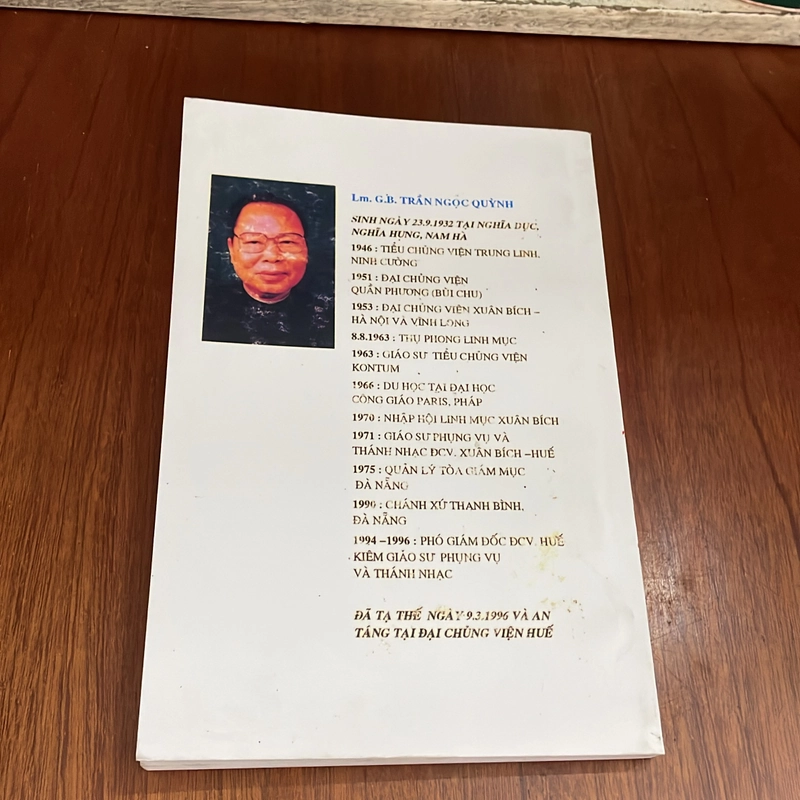 Lm. G.B. TRẦN NGỌC QUỲNH
SINH NGÀY 23.9.1932 TẠI NGHĨA DỤC,
NGHĨA HƯNG, NAM HÀ
1946 : TIỂU CHỦNG VIỆN TRUNG LINH,
NINH CƯỜNG
1951 : ĐẠI CHỦNG VIỆN
QUẦN PHƯƠNG (BÙI CHU)
1953 : ĐẠI CHỦNG VIỆN XUÂN BÍCH –
HÀ NỘI VÀ VĨNH LONG
8.8.1963 : THỤ PHONG LINH MỤC
1963 : GIÁO SƯ TIỂU CHỦNG VIỆN
KONTUM
1966 : DU HỌC TẠI ĐẠI HỌC
CÔNG GIÁO PARIS, PHÁP
1970 : NHẬP HỘI LINH MỤC XUÂN BÍCH
1971 : GIÁO SƯ PHỤNG VỤ VÀ
THÁNH NHẠC ĐCV. XUÂN BÍCH –HUẾ
1975 : QUẢN LÝ TÒA GIÁM MỤC
ĐÀ NẴNG
1990 : CHÁNH XỨ THANH BÌNH,
ĐÀ NẴNG
1994 –1996 : PHÓ GIÁM ĐỐC ĐCV. HUẾ
KIÊM GIÁO SƯ PHỤNG VỤ
VÀ THÁNH NHẠC
ĐÃ TẠ THẾ NGÀY 9.3.1996 VÀ AN
TÁNG TẠI ĐẠI CHỦNG VIỆN HUẾ